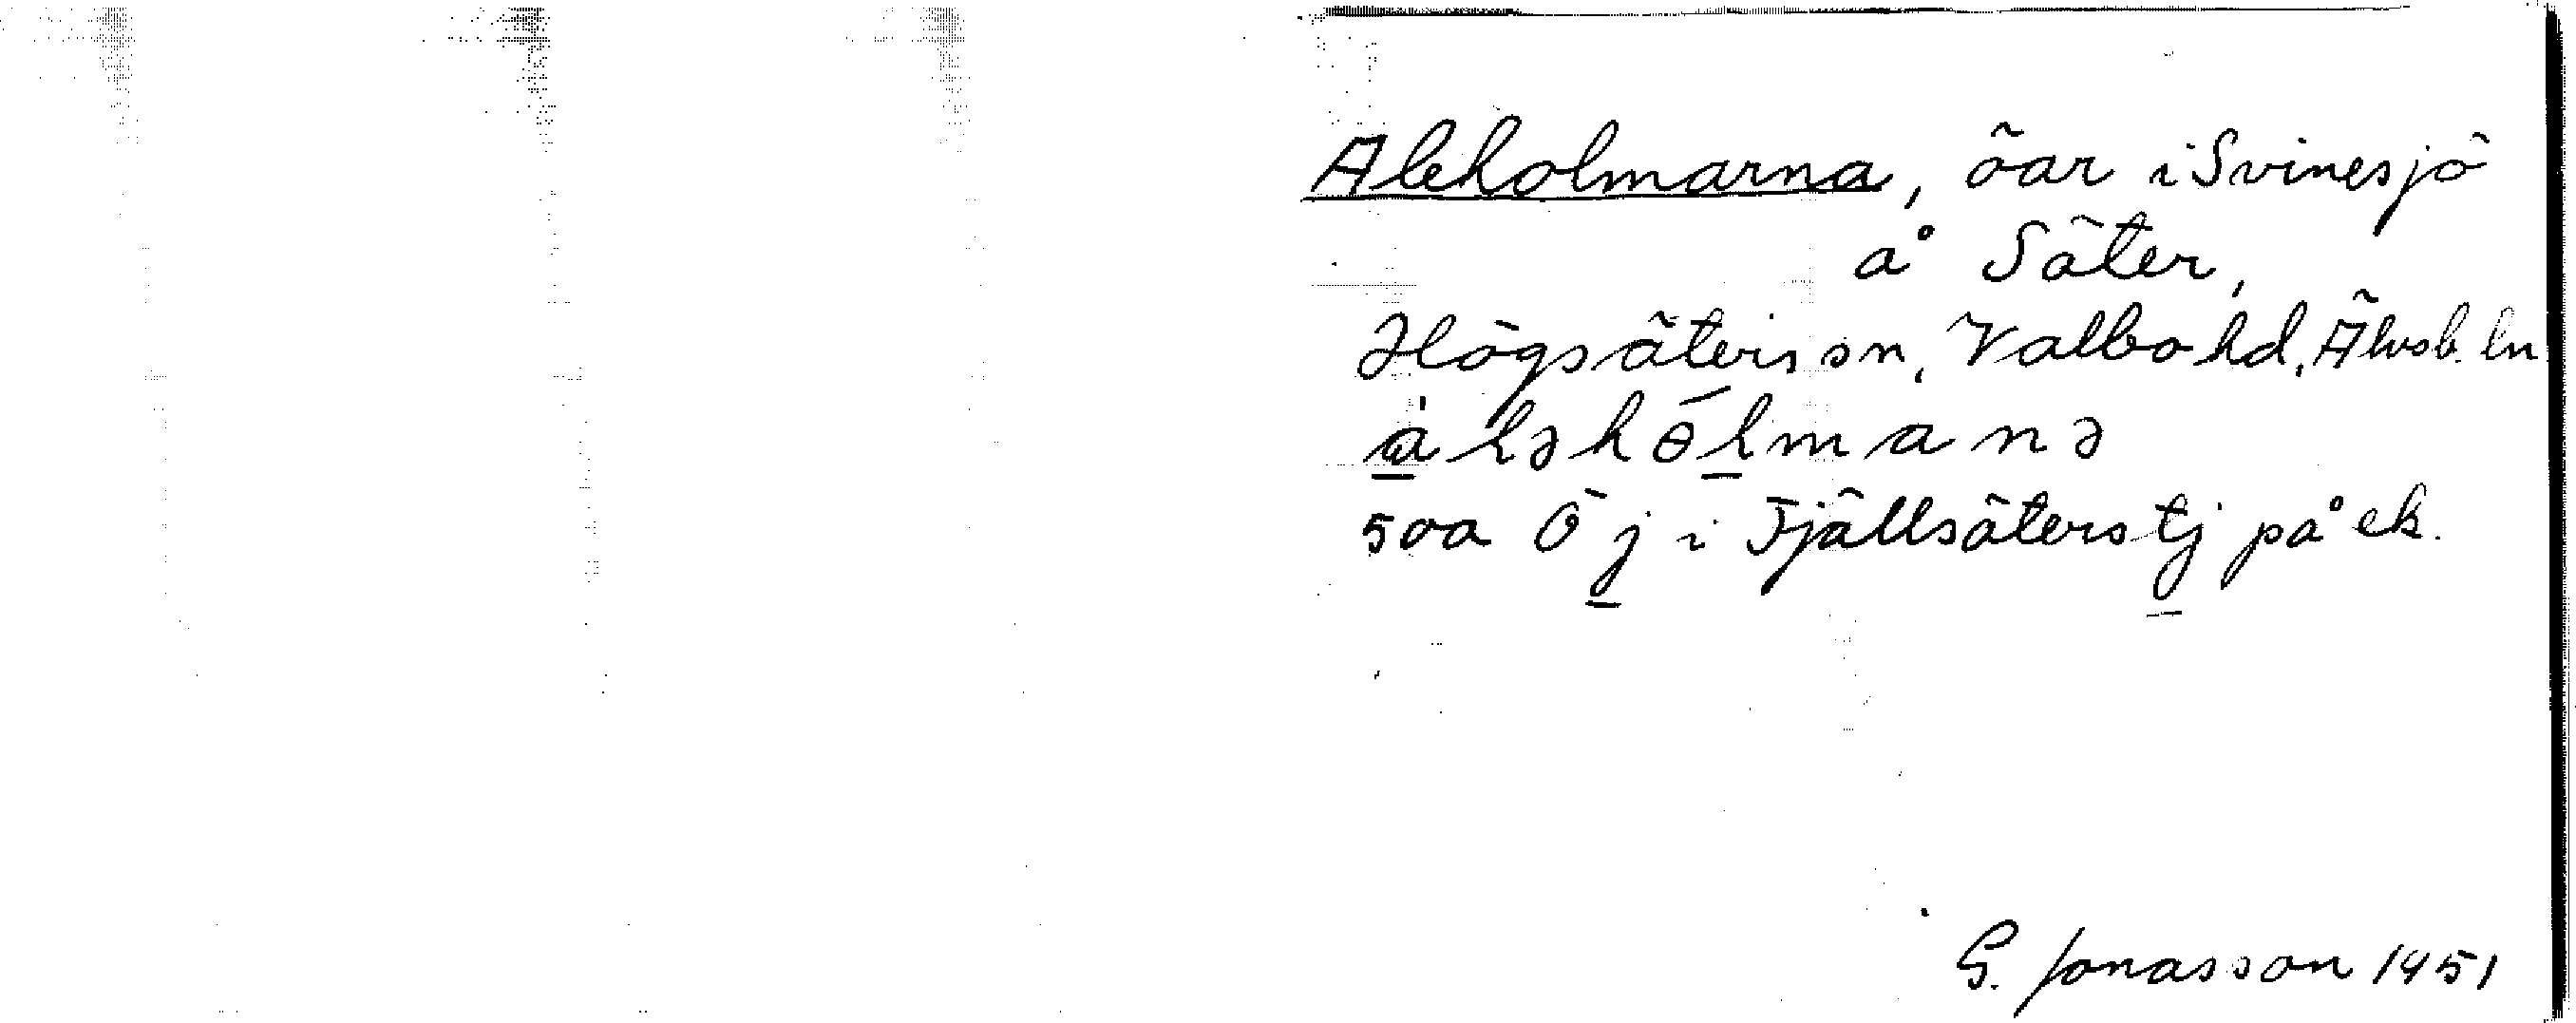 Aleholmarna, öar i Svinesjö
å Säter,
Högsäters sn, Valbo hd, Älvsb. ln
àləhólmanə
500 Ö j i Fjällsäters tj på ek.
G. Jonasson 1951